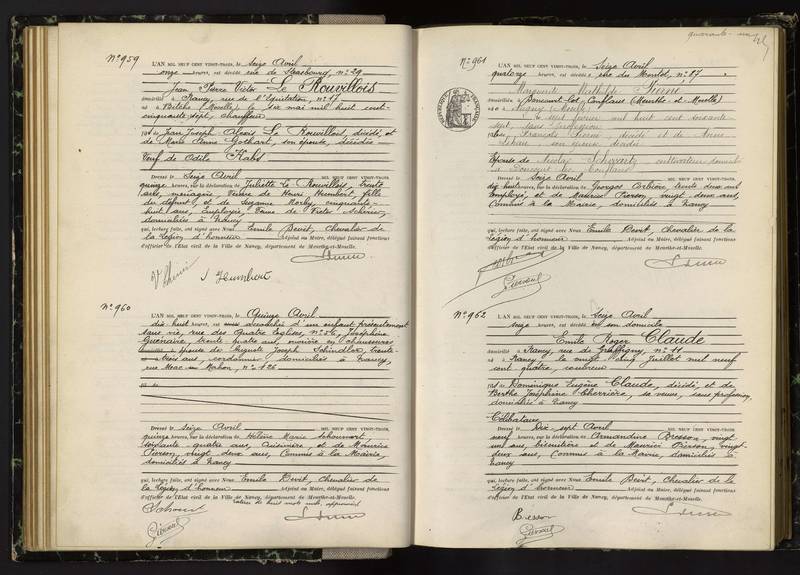 N° 959
L'AN MIL NEUF CENT VINGT-TROIS, le Seize Avril
onze heures, est décédé rue de Strasbourg, n° 29
Jean Pierre Victor Le Rouvillois
domicilié à Nancy, rue de l'Equitation, n° 17
né à Bitche (Moselle), six mai mil huit cent
cinquante sept, chauffeur
fils de Jean Joseph Alexis Le Rouvillois, décédé et
de Marie Anne Gothart, son épouse, décédée
Veuf de Odile Kahs
Dressé le Seize Avril MIL NEUF CENT VINGT-TROIS,
quinze heures, sur la déclaration de Juliette Le Rouvillois, trente
ans, ménagère, veuve de Henri Humbert, fille
du défunt, et de Suzanne Morby, cinquante-
huit ans, employée, Dame de Victor
domiciliées à Nancy
qui, lecture faite, ont signé avec Nous Emile Devit, Chevalier de
la Légion d'honneur Adjoint au Maire, délégué faisant fonctions
d'officier de l'Etat civil de la Ville de Nancy, département de Meurthe-et-Moselle.
J Humbert
N° 960
L'AN MIL NEUF CENT VINGT-TROIS, le Quinze Avril
dix-huit heures accouchée d'un enfant présentement
sans vie, rue des Quatre Eglises, n° 56, Joséphine
Guenaire, trente quatre ans, ouvrière en chaussures
épouse de Auguste Joseph Schindler, trente-
trois ans, cordonnier, domiciliés à Nancy,
rue Mac Mahon, n° 126
Dressé le Seize Avril MIL NEUF CENT VINGT-TROIS,
quinze heures, sur la déclaration de Hélène Marie Schouvert,
soixante-quatre ans, cuisinière et de Maurice
Pierson, vingt deux ans, Commis à la Mairie,
domiciliés à Nancy
qui, lecture faite, ont signé avec Nous Emile Devit, Chevalier de
la Légion d'honneur Adjoint au Maire, délégué faisant fonctions
d'officier de l'Etat civil de la Ville de Nancy, département de Meurthe-et-Moselle.
huit mots nuls, approuvé
quarante-un
N° 961
L'AN MIL NEUF CENT VINGT-TROIS, le Seize Avril
quatorze heures, est décédée rue du Montet, n° 87
Marguerite Mathilde Pierné
domiciliée à Doncourt-lès-Conflans (Meurthe-et-Moselle)
le sept février mil huit cent soixante
sept, sans profession
fille François Pierné, décédé et de Anne
son épouse, décédée
Epouse de Nicolas Schwartz cultivateur domicilié
à Doncourt les Conflans
Dressé le Seize Avril MIL NEUF CENT VINGT-TROIS,
dix huit heures, sur la déclaration de Georges Corbière, trente deux ans
employé, et de Maurice Pierson, vingt deux ans,
Commis à la Mairie, domiciliés à Nancy
qui, lecture faite, ont signé avec Nous Emile Devit, Chevalier de la
Légion d'honneur Adjoint au Maire, délégué faisant fonctions
d'officier de l'Etat civil de la Ville de Nancy, département de Meurthe-et-Moselle.
N° 962
L'AN MIL NEUF CENT VINGT-TROIS, le Seize Avril
seize heures, est décédé en son domicile
Emile Roger Claude
domicilié à Nancy, rue de Graffigny, n° 11
né à Nancy le vingt cinq Juillet mil neuf
cent quatre, couvreur
fils de Dominique Eugène Claude, décédé et de
Berthe Joséphine Lcherrière, sa veuve, sans profession,
domiciliée à Nancy
Célibataire
Dressé le Dix-sept Avril MIL NEUF CENT VINGT-TROIS,
neuf heures, sur la déclaration de Armandine Bresson, vingt
un ans, et de Maurice Pierson, vingt-
deux ans, Commis à la Mairie, domiciliés à
Nancy
qui, lecture faite, ont signé avec Nous Emile Devit, Chevalier de la
Légion d'honneur Adjoint au Maire, délégué faisant fonctions
d'officier de l'Etat civil de la Ville de Nancy, département de Meurthe-et-Moselle.
Bresson